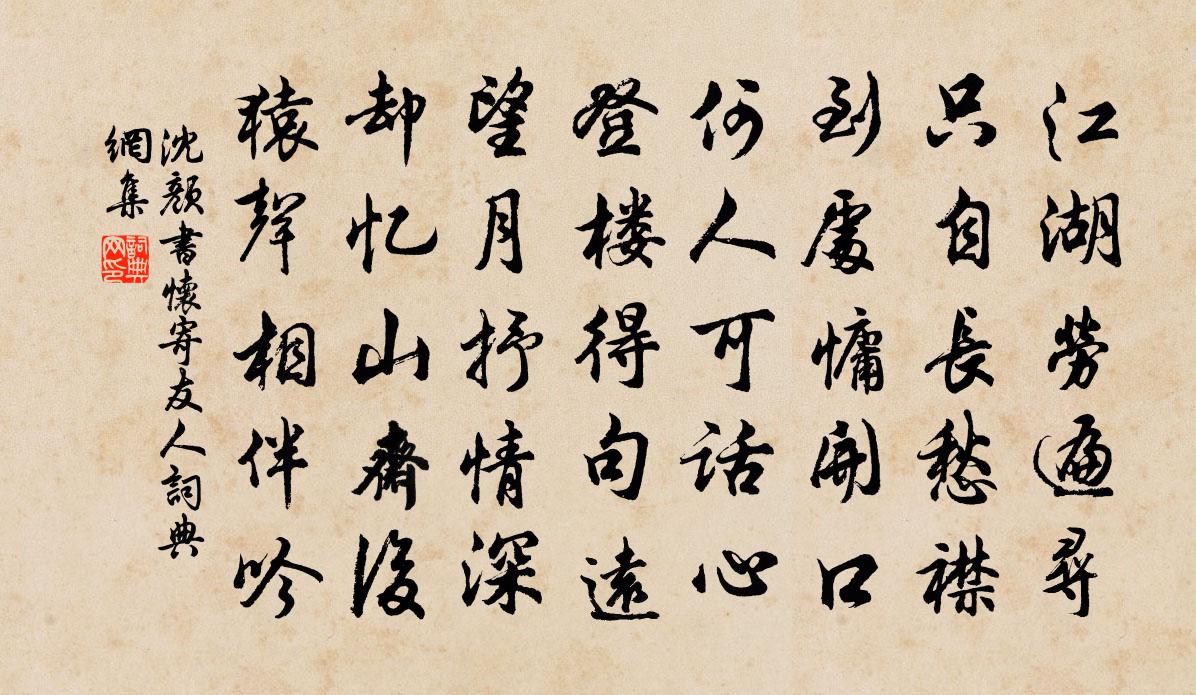 江湖勞遍尋
只自長愁襟
到處慵開口
何人可話心
登楼得句遠
望月抒情深
却忆山齋後
猿聲相伴吟
沈顏書懷寄友人詞典
網集
詞典
网印